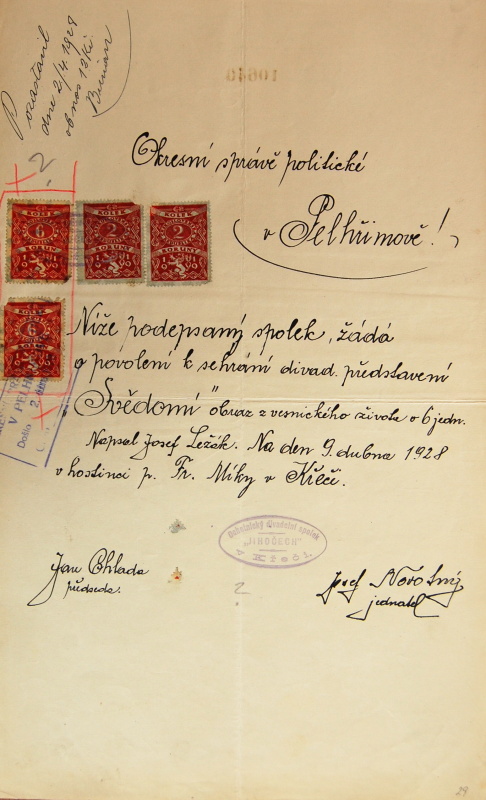 Pozastavil
dne 2/4. 1928
obnos 13 Kč.
10640
2
Okresní správě politické
v Pelhřimově!
KOLEK
6
KORUNY
KOLEK
2
KORUNY
KOLEK
2
KORUNY
KOLEK
6
V PELH
Došlo 2.
Níže podepsaný spolek, žádá
o povolení k sehrání divad. představení
Svědomí" obraz z vesnického života o 6 jedn.
Napsal Josef Ležák. Na den 9. dubna 1928
v hostinci p. Fr. Míky v Křeči.
Dobrovolný divadelní spolek
"JIHOČECH"
v Křeči.
Jan Chlada
předseda.
2
Josef Novotný
jednatel
29